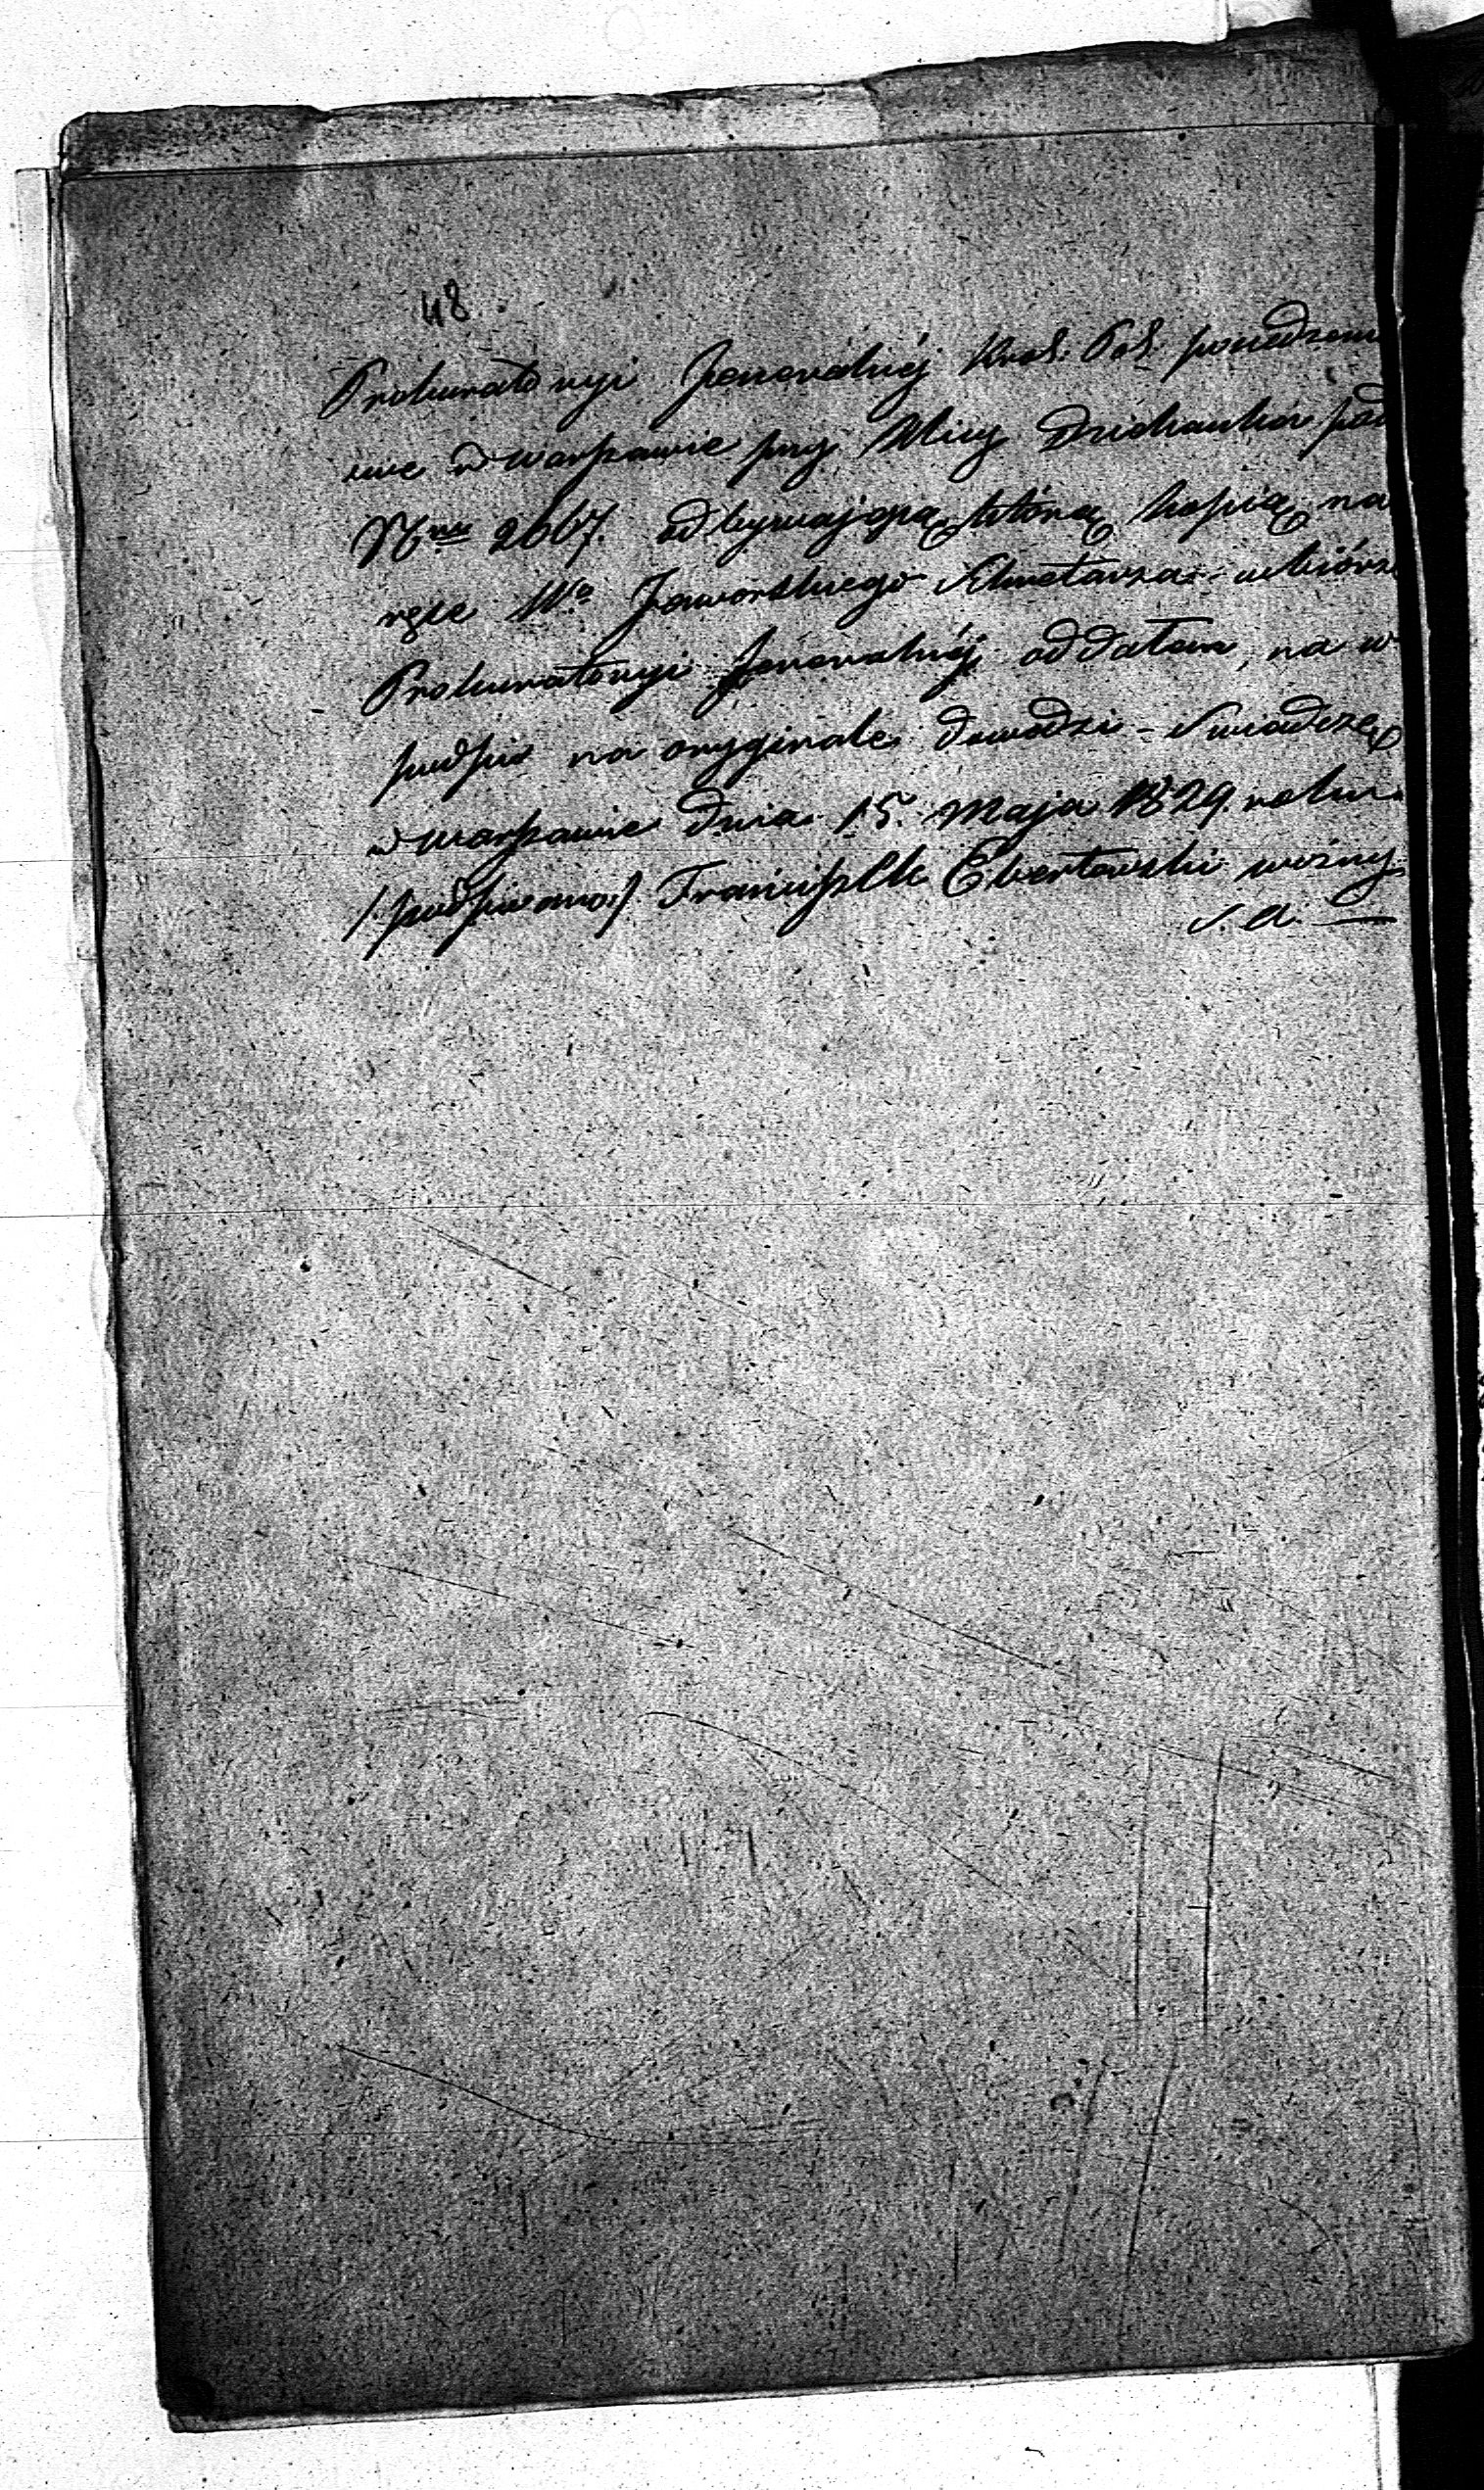 48
Prokuratoryi Jeneralnéj Król: Pol: posiedzenia
swe w Warszawie przy Ulicy Dziekanka pod
Nrm 2667. odbywającą, którą kopią na
ręce Wo Jaworskiego Sekretarza w biórze
Prokuratoryi Jeneralnéj oddałem, na w
podpis na oryginale dowodzi – Swiadczę
w Warszawie dnia 15. Maja 1829 roku
/:podpisano:/ Franciszek Ekertowski wożny
S. A. —